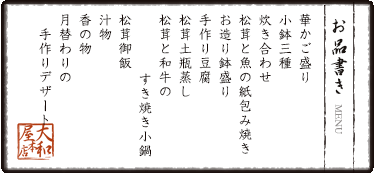 お品書き
MENU
華かご盛り
小鉢三種
炊き合わせ
松茸と魚の紙包み焼き
お造り鉢盛り
手作り豆腐
松茸土瓶蒸し
松茸と和牛の
すき焼き小鍋
松茸御飯
汁物
香の物
月替わりの
手作りデザート
大和屋本店